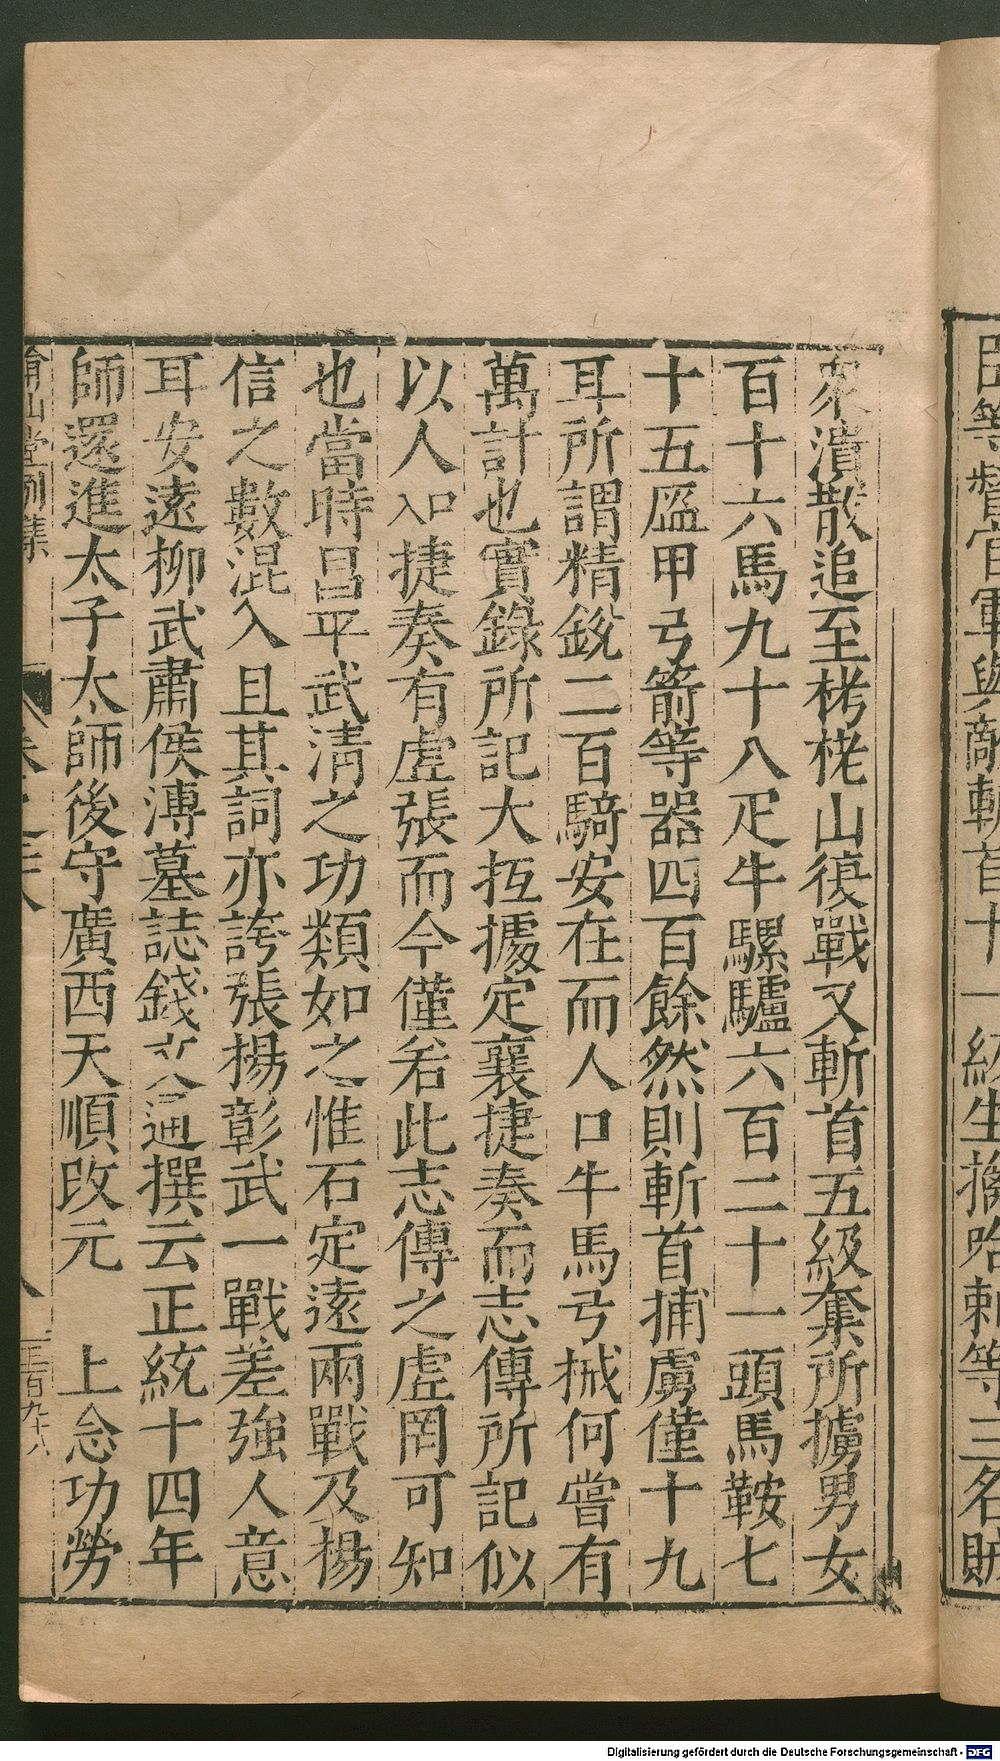 臣等督官軍與敵斬首十一級生擒哈剌等三名賊
衆潰散追至栲栳山復戰又斬首五級奪所擄男女
百十六馬九十八疋牛騾驢六百二十一頭馬鞍七
十五盔甲弓箭等器四百餘然則斬首捕虜僅十九
耳所謂精銳二百騎安在而人口牛馬弓械何嘗有
萬計也實錄所記大抵據定襄捷奏而志傳所記似
以人入口捷奏有虛張而今僅若此志傳之虛罔可知
也當時昌平武清之功類如之惟石定遠兩戰及揚
信之數混入且其詞亦誇張揚彰武一戰差強人意
耳安遠柳武肅侯溥墓誌錢文通撰云正統十四年
師還進太子太師後守廣西天順改元 上念功勞
弇山堂別集
二百九十八
Digitalisierung gefördert durch die Deutsche Forschungsgemeinschaft - DFG